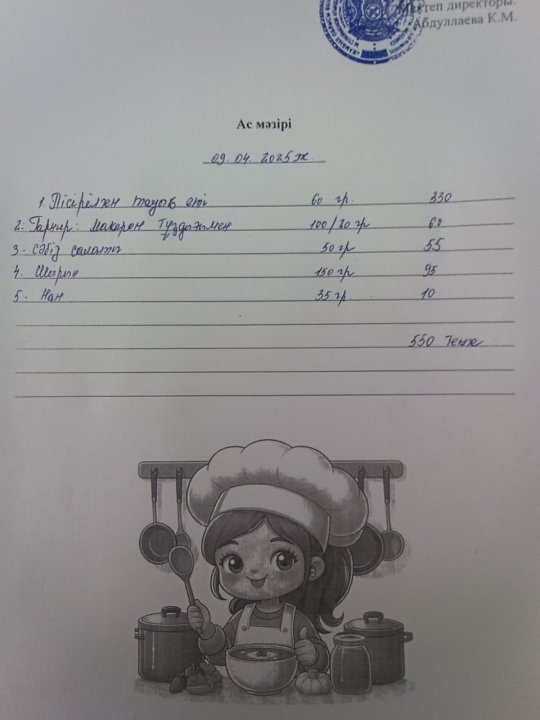 Мектеп директоры:
Абдуллаева К.М.
Ас мәзірі
09.04.2025ж.
1. Пісірілген тауық еті 60 гр. 330
2. Гарнир: макарон тұздығымен 100/20 гр 60
3. Сәбіз салаты 50 гр 55
4. Шырын 150 гр 95
5. Нан 35 гр. 10
550 теңге